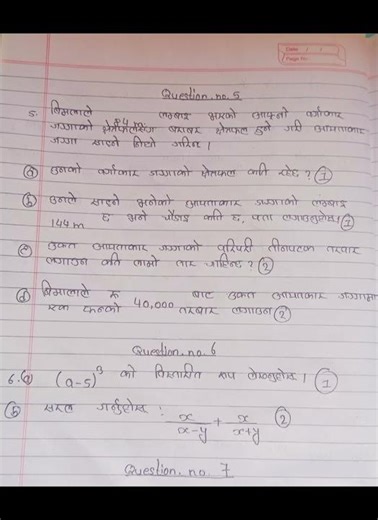 Date
Page No.
Question. no. 5
5. बिमलाले लम्बाइ भएको आफ्नो वर्गाकार
84 m
जग्गाको क्षेत्रफलसँग बराबर क्षेत्रफल हुने गरी आयताकार
जग्गा साट्ने
a) उनको वर्गाकार जग्गाको क्षेत्रफल कति रहेछ ? 1
b) उनले साट्ने भनेको आयताकार जग्गाको लम्बाइ
144 m छ भने चौडाइ कति छ, पत्ता लगाउनुहोस् 1
c) उक्त आयताकार जग्गाको वरिपरी तीनपटक तारबार
लगाउन कति लामो तार चाहिन्छ ? 2
d) बिमलाले रु 40,000 बाट उक्त आयताकार जग्गामा
तारबार लगाउन 2
Question. no. 6
6. a) (a-5)³ को विस्तारित रूप लेख्नुहोस् । 1
b) सरल गर्नुहोस् : x/x-y + x/x+y 2
Question. no. 7